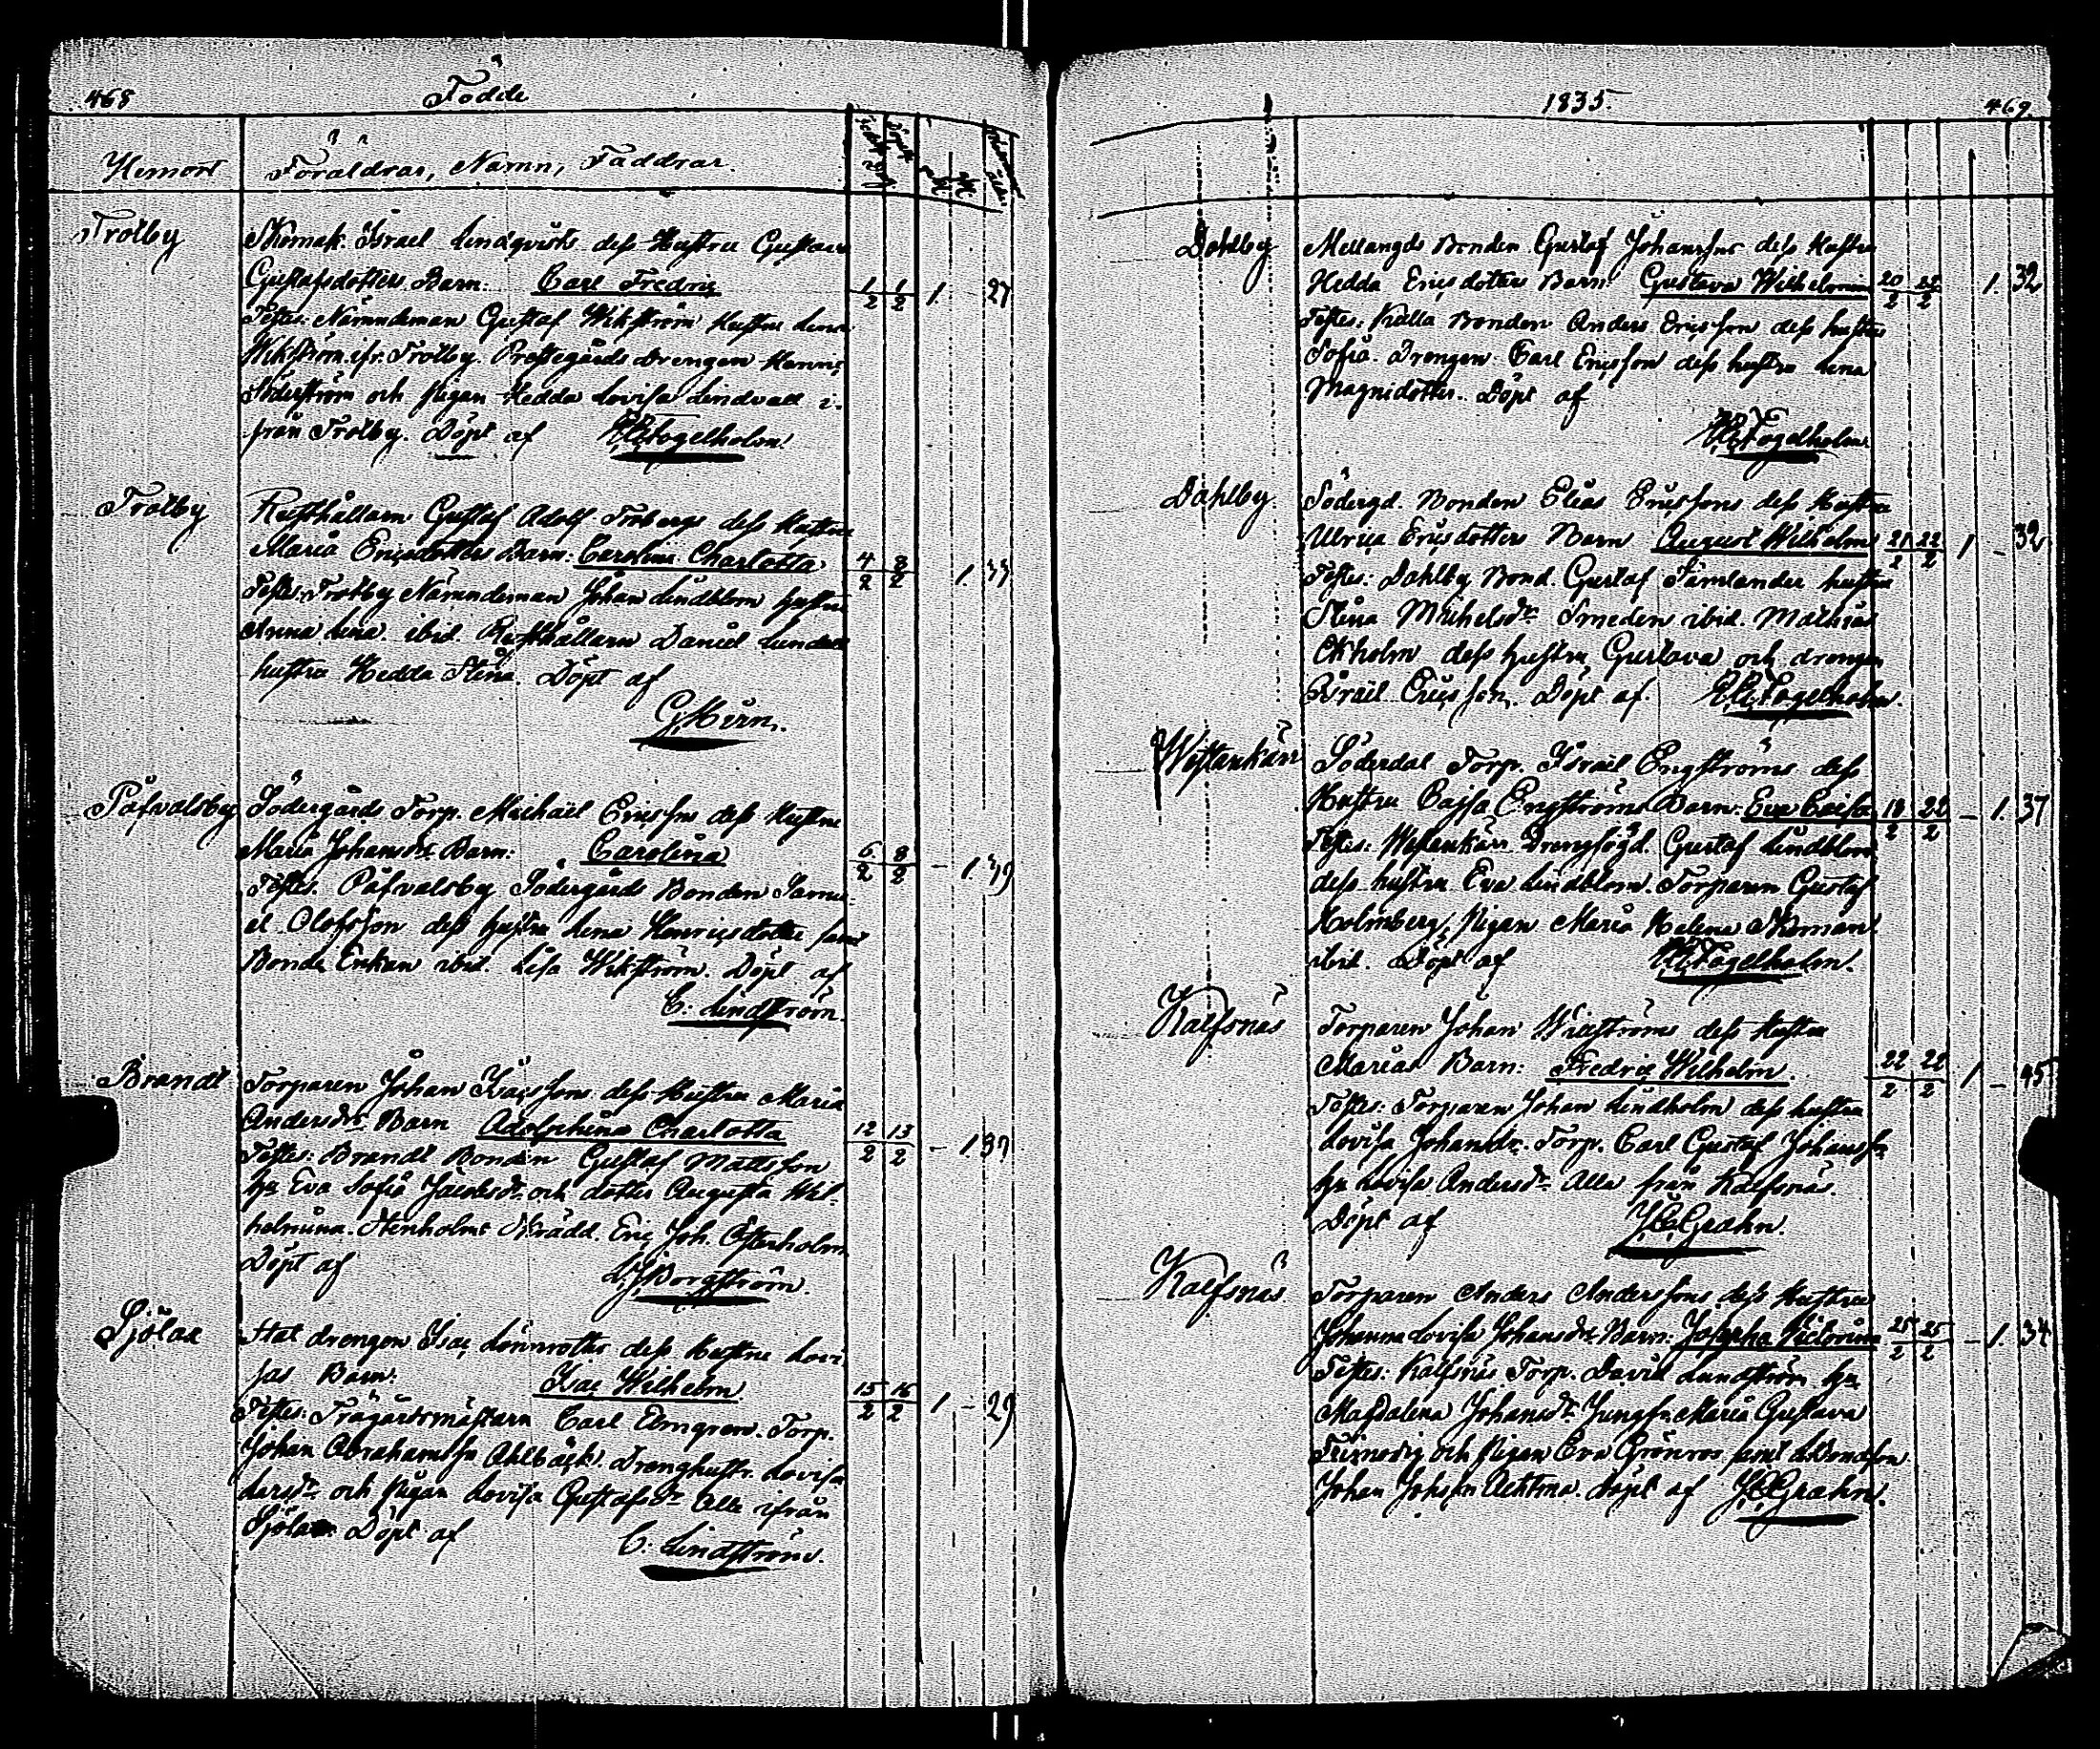 468
Födde
Hemort
Föräldrar, Namn, Faddrar.
Trotby
Skomak. Israel Lindqvists dess Hustru Gustava
Gustafsdotters Barn: Carl Fredric
1/2 1/2 1 27
Testes: Nämndeman Gustaf Wikström Hustru Lena
Wikström ifr. Trotby. Prestegårds drengen Henric
Söderström och pigan Hedda Lovisa Lindvall i-
från Trotby. Döpt af Fogelholm.
Trotby
Rusthållaren Gustaf Adolf Frobergs dess Hustru
Maria Ericsdotters Barn: Carolina Charlotta
4/2 8/2 1. 33
Testes: Trotby Nämndeman Johan Lindblom hustru
Anna Lena ibid. Rusthållaren Daniel
hustru Hedda Stina. Döpt af
G. Hirn.
Påfvalsby
Södergårds Torp. Michäel Ericssons dess Hustru
Maria Johansdr. Barn: Carolina
6/2 8/2 - 1. 49
Testes. Påfvalsby Södergårds Bonden Samu-
el Olofsson dess hustru Lena Henricsdotter samt
Bonde Enkan ibid. Lisa Wikström. Döpt af
C: Lindström.
Brandt
Torparen Johan Isacssons dess Hustru Maria
Andersdrs. Barn Adolphina Charlotta
12/2 13/2 - 1. 37
Testes: Brandt Bonden Gustaf Mattsson
hu Eva Sofia Jacobsdr. och dotter Augusta Wil-
helmina. Stenholms Skrädd. Eric Joh. Österholm
Döpt af Borgström.
Sjölax
Stat drengen Isac Lönnrotts dess Hustru Lovi-
sas Barn: Isac Wilhelm
15/2 16/2 1 - 29
Testes: Trägårdsmästarn Carl Elmgren. Torp.
Johan Abrahamsson Ahlbäck. Drenghustr. Lovisa
Larsdr. och pigan Lovisa Gustafsdr. Alla ifrån
Sjölax Döpt af C: Lindström.
1835.
469.
Dahlby
Mellangds Bonden Gustaf Johanssons dess Hustru
Hedda Ericsdotters Barn: Gustava Wilhelmina
20/2 22/2 1. 32
Testes: Källa Bonden Anders Ericsson dess hustru
Sofia. Drengen Carl Ericsson dess hustru Lena
Magnidotter. Döpt af
Fogelholm
Dahlby
Södergd. Bonden Elias Ericssons dess Hustru
Ulrica Ericsdotters Barn August Wilhelm
21/2 22/2 1 - 32
Testes: Dahlby Bond. Gustaf hustru
Stina Michelsdr. Smeden ibid. Mathias
Ekholm dess hustru Gustava och drengen
Israel Ericsson. Döpt af Fogelholm.
Westankärr
Söderdal Torp. Israel Engströms dess
Hustru Caisa Engströms Barn: Eva Caisa
18/2 22/2 - 1. 37
Testes: Westankärr Drengfogd. Gustaf Lindblom
dess hustru Eva Lindblom. Torparen Gustaf
Holmberg, pigan Maria Helena
ibid. Döpt af Fogelholm.
Kalfsnäs
Torparen Johan Wickströms dess Hustru
Marias Barn: Fredric Wilhelm.
22/2 22/2 1 - 45
Testes: Torparen Johan Lindholm dess hustru
Lovisa Johansdr. Torp. Carl Gustaf Johansson
hu Lovisa Andersdr. Alla från Kalfsnäs.
Döpt af Grahn.
Kalfsnäs
Torparen Anders Anderssons dess Hustru
Johanna Lovisa Johansdrs Barn: Josepha Victorina
25/2 25/2 - 1. 34
Testes: Kalfsnäs Torp. David Lundström hu
Magdalena Johansdr. Jungfru Maria Gustava
Frimodig och pigan Eva Grönroos samt
Johan Johsson Döpt af Grahn.